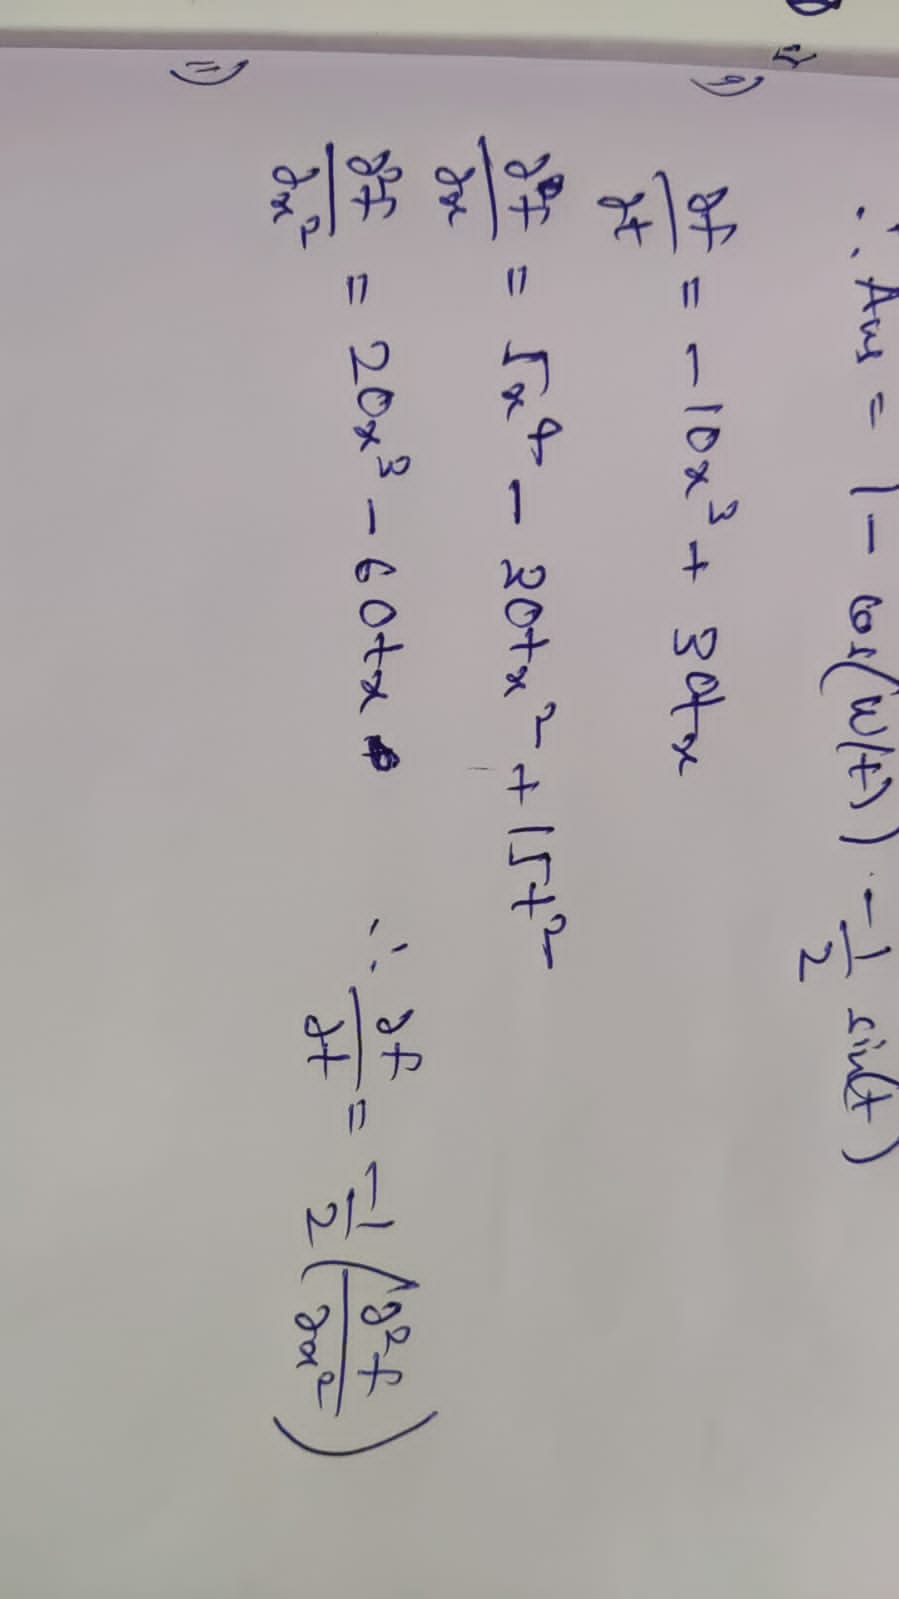 ∴ Ans = 1 - cos(W(t)) - 1/2 sin(t)
i)
∂f/∂t = -10x³ + 30tx
∂f/∂x = 5x⁴ - 30tx² + 15t²
∂²f/∂x² = 20x³ - 60tx ∴ ∂f/∂t = -1/2 (∂²f/∂x²)
ii)